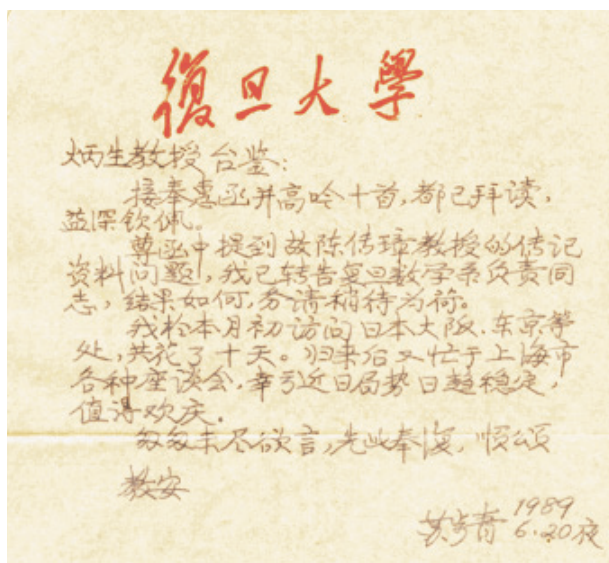 復旦大學
炳生教授台鉴:
接奉惠函并高吟十首,都已拜读,
益深钦佩。
尊函中提到故陈传璋教授的传记
资料问题,我已转告复旦数学系负责同
志,结果如何,务请稍待为荷。
我于本月初访问日本大阪、东京等
处,共花了十天。归来后又忙于上海市
各种座谈会,幸引近日局势日趋稳定,
值得欢庆.
匆匆未尽欲言,先此奉復,顺颂
教安
苏步青 1989
6.20夜